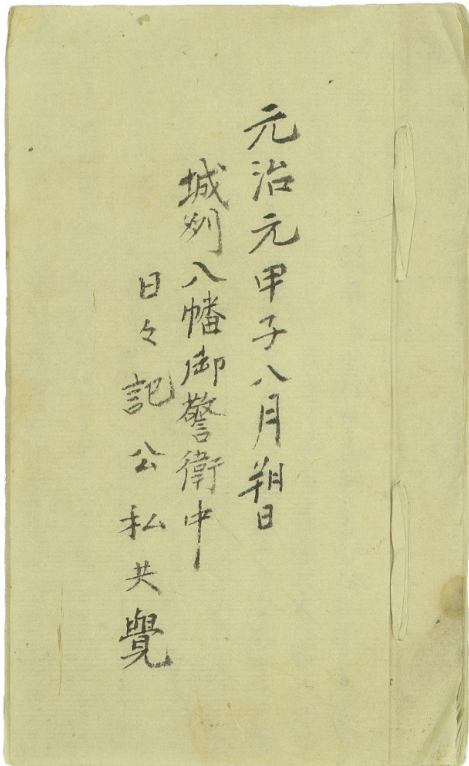 元治元甲子八月朔日
城州八幡御警衛中
日々記公私共覺